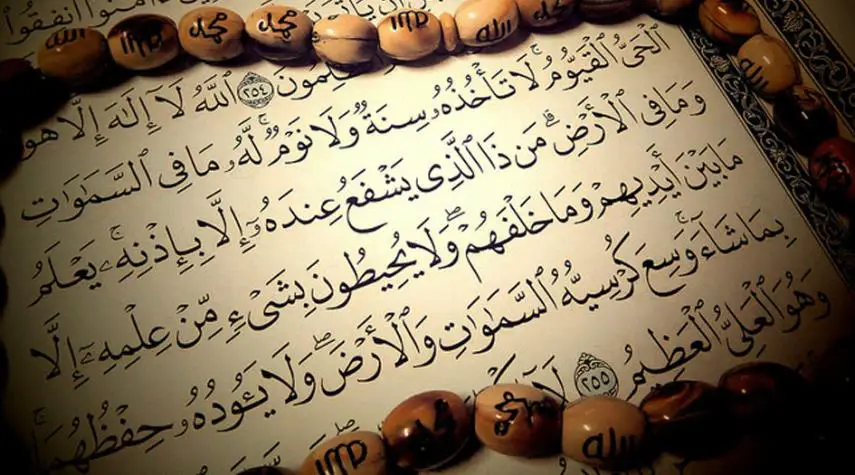 أَنفِقُوا
الله محمد محمد
ٱللَّهُ لَآ إِلَٰهَ إِلَّا هُوَ ٢٥٤
ٱلْحَىُّ ٱلْقَيُّومُ ۚ لَا تَأْخُذُهُۥ سِنَةٌ وَلَا نَوْمٌ ۚ لَّهُۥ مَا فِى ٱلسَّمَٰوَٰتِ
وَمَا فِى ٱلْأَرْضِ ۗ مَن ذَا ٱلَّذِى يَشْفَعُ عِندَهُۥٓ إِلَّا بِإِذْنِهِۦ ۚ يَعْلَمُ
مَا بَيْنَ أَيْدِيهِمْ وَمَا خَلْفَهُمْ ۖ وَلَا يُحِيطُونَ بِشَىْءٍ مِّنْ عِلْمِهِۦٓ إِلَّا
بِمَا شَآءَ ۚ وَسِعَ كُرْسِيُّهُ ٱلسَّمَٰوَٰتِ وَٱلْأَرْضَ ۖ وَلَا يَـُٔودُهُۥ حِفْظُهُمَا ۚ
وَهُوَ ٱلْعَلِىُّ ٱلْعَظِيمُ ٢٥٥ لَآ
الله محمد